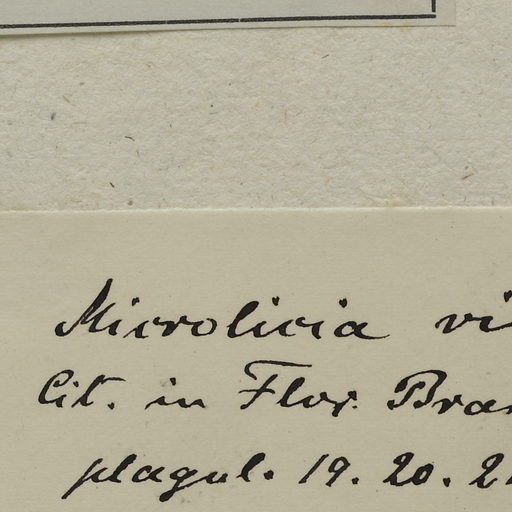 Microlicia vi
Cit. in Flor. Bras
plagul. 19. 20. 21